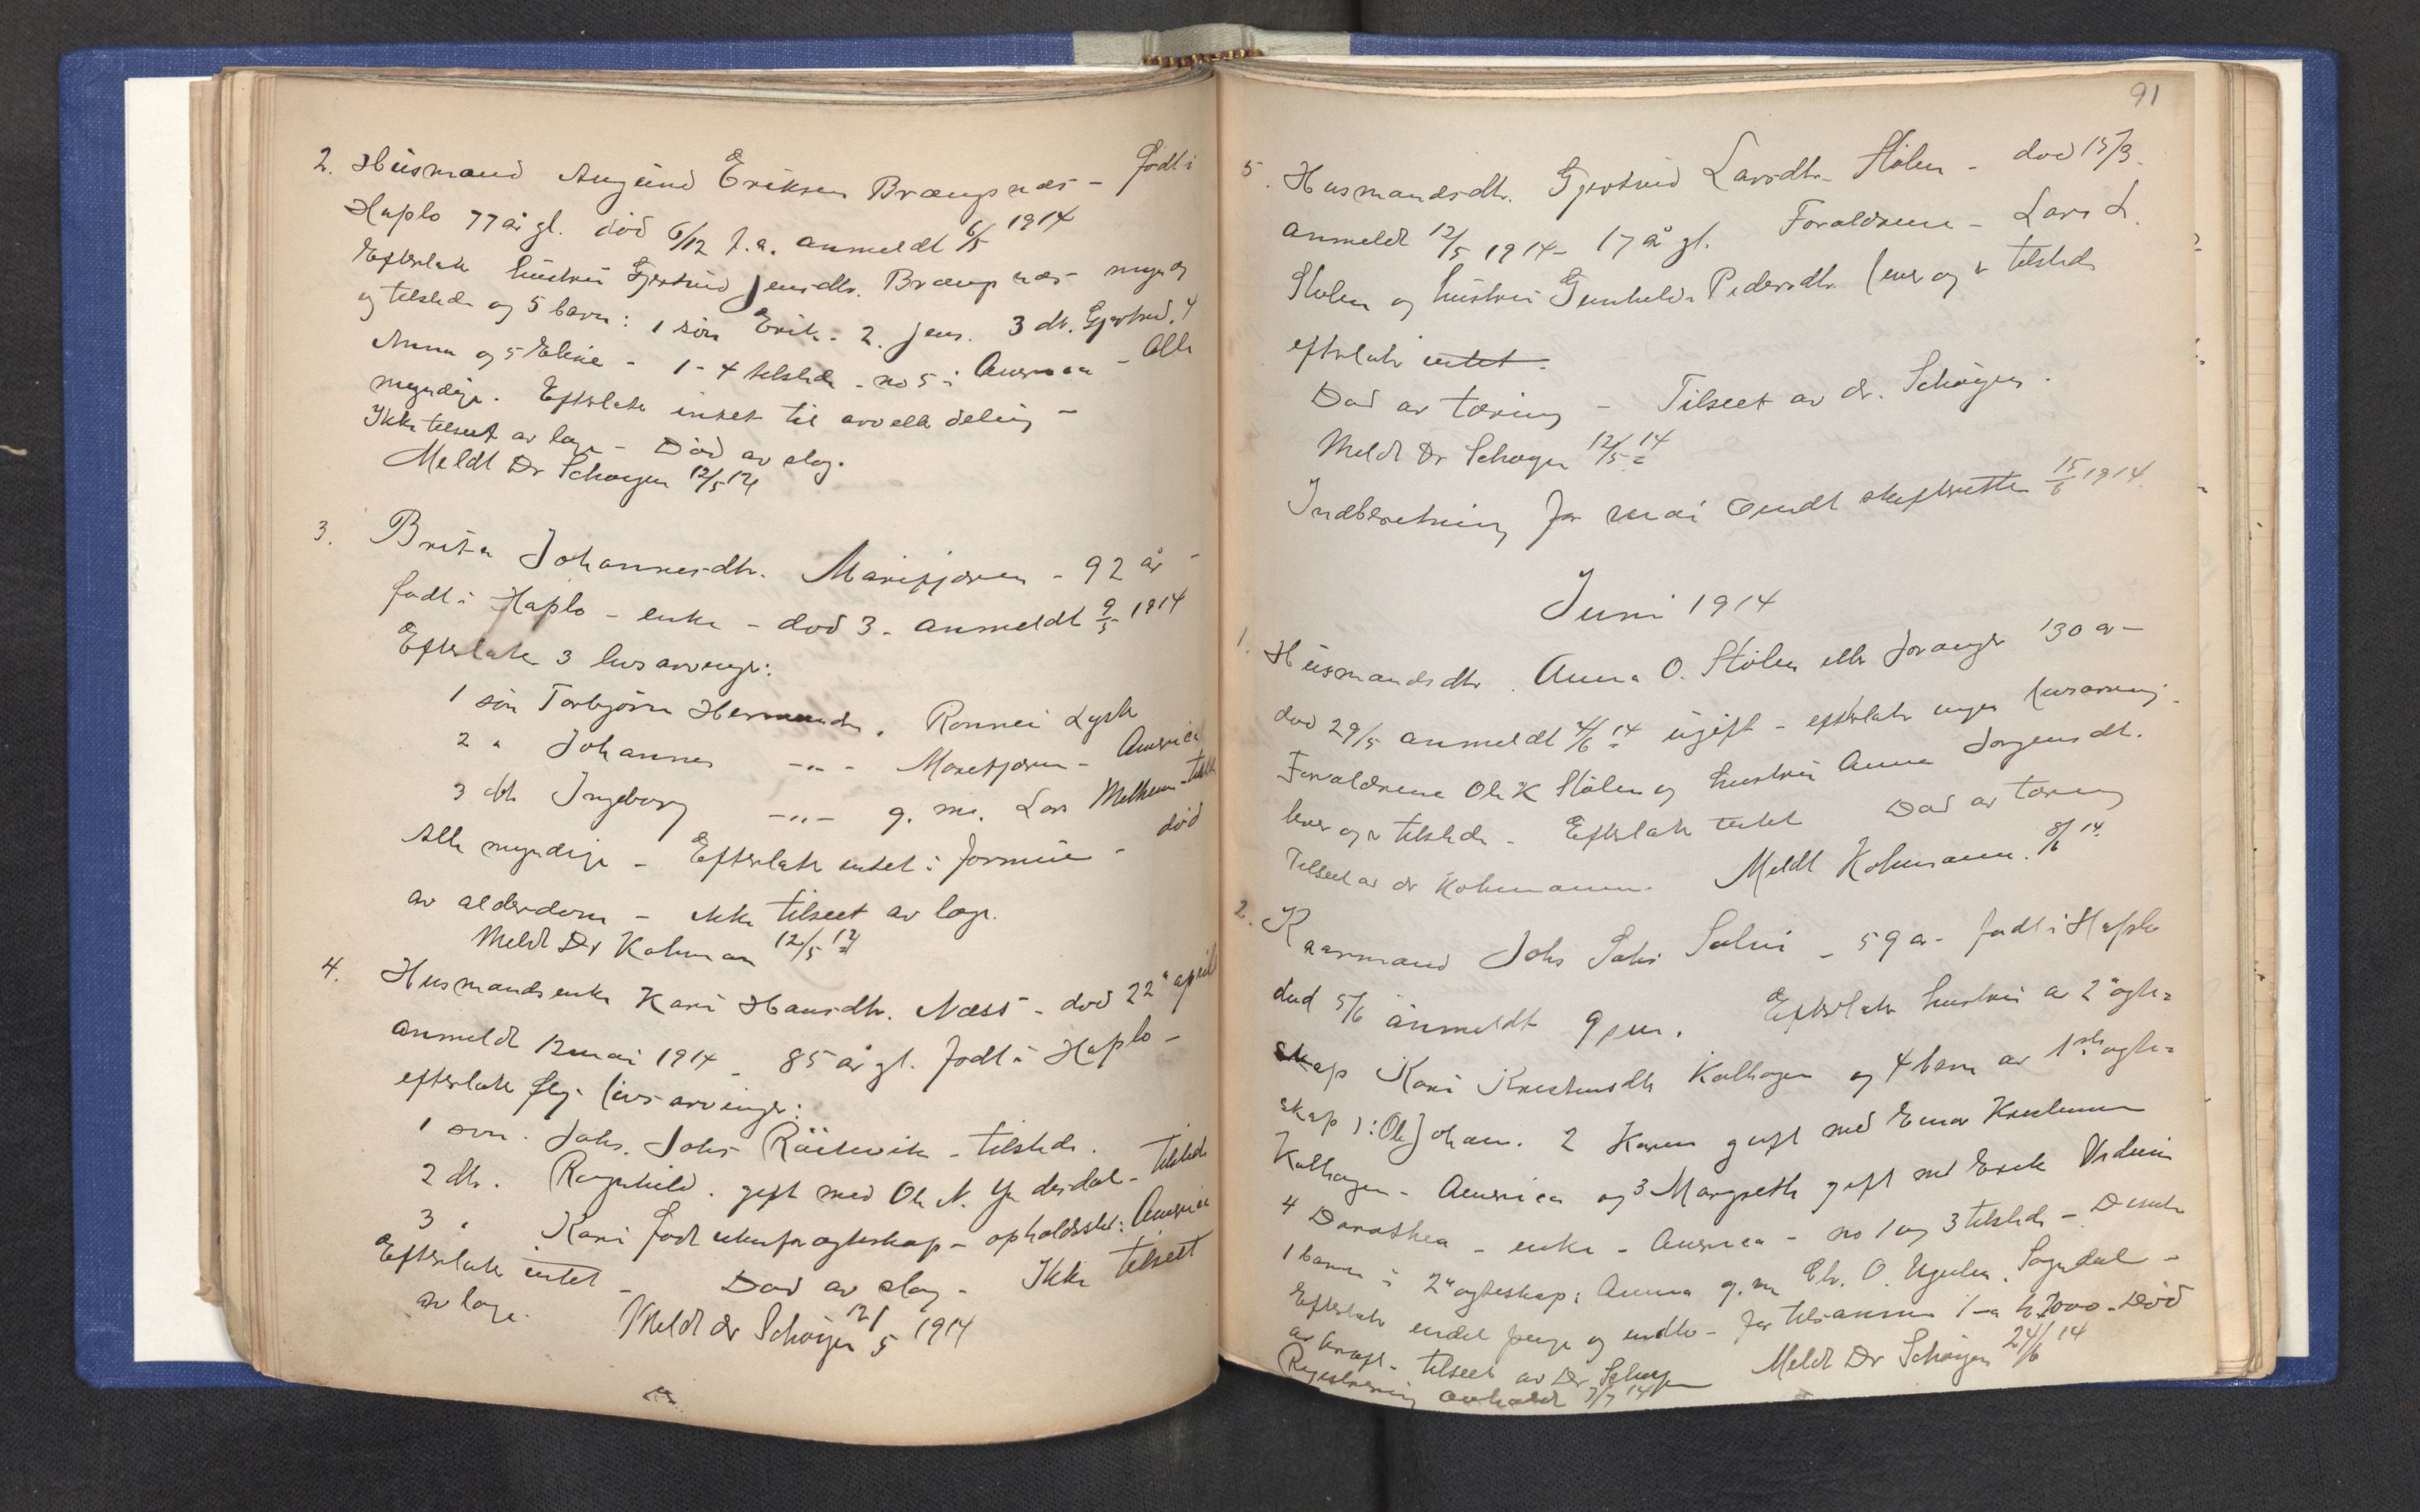 2. Husmand Augund Eriksen Brængsnæs - født i
Haplo 77 år gl. død 6/12 f.a. anmeldt 6/5 1914
Efterlate hustru Gjertrud Jensdtr. Brængsnæs - myndig
og tilstede og 5 barn: 1 søn Erik - 2. Jens. 3 dt. Gjertrud. 4
Anna og 5 Eline - 1-4 tilstede - no 5 i America - Alle
myndige. Efterlate intet til arv eller deling -
Ikke tilseet av læge - Død av slag.
Meldt Dr Schøyen 12/5 14
3. Brita Johannesdtr. Marifjæren - 92 år -
født i Haplo - enke - død 3. anmeldt 9/5 1914
Efterlate 3 livsarvinger:
1 søn Torbjørn Hermunds. Rønnei Lyster
2 " Johannes -"- Marifjæren - America
3 dtr Ingeborg -"- g. m. Lars Melheim - tilst
Alle myndige - Efterlate intet i formue - død
av alderdom - ikke tilseet av læge.
Meldt Dr Kohman 12/5 14
4. Husmandsenke Kari Hansdtr. Næss - død 22 april
anmeldt 12 mai 1914 - 85 år gl. født i Haplo -
efterlate flg. livsarvinger:
1 søn. Johs. Johs - tilstede.
2 dtr. Ragnhild. gift med Ole N. Yndesdal - tilstede
3 " Kari født utenfor ægteskap - opholdssted: America
Efterlate intet - Død av slag - Ikke tilseet
av læge. Meldt dr Schøyen 12/5 1914
91
5. Husmandsdtr. Gjertrud Larsdtr. Stølen - død 15/3.
anmeldt 12/5 1914 - 17 år gl. Forældrene - Lars L.
Stølen og hustru Gunhild Pedersdtr. lever og er tilstede
efterlate intet.
Død av tæring - Tilseet av dr. Schøyen.
Meldt Dr Schøyen 12/5 14
Indberetning for mai sendt skifteretten 15/6 1914.
Juni 1914
1. Husmandsdtr. Anna O. Stølen eller Joranger 30 a -
død 29/5 anmeldt 4/6 14 ugift - efterlate ingen livsarving.
Forældrene Ole K Stølen og hustru Anna Jørgensdt.
lever og er tilstede - Efterlate intet Død av tæring
Tilseet av dr Kohmann. Meldt Kohmann. 8/6 14.
2. Kaarmand Johs Johs Solvi - 59 a - født i Haplo
død 5/6 anmeldt 9 jun. Efterlate hustru av 2" ægte=
skap Kari Kristensdtr Kalhagen og 4 barn av 1ste ægte=
skap 1: Ole Johan. 2 Karen gift med Einar Kristensen
Kalhagen - America og 3 Margrethe gift med Erik
4 Dorothea - enke - America - no 1 og 3 tilstede - Desuten
1 barn i 2" ægteskap: Anna g. m. Chr. O. Ugulen. Sogndal -
Efterlate endel penge og indbo - før tilsammen kr 2000 - Død
av kræft - tilseet av Dr. Schøyen Meldt Dr Schøyen 24/6 14
Registrering avholdt 7/7 14